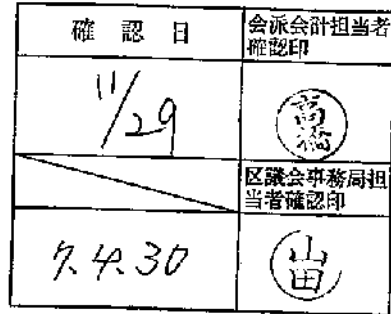 確認日
会派会計担当者
確認印
11/29
高橋
区議会事務局担
当者確認印
7.4.30
山田